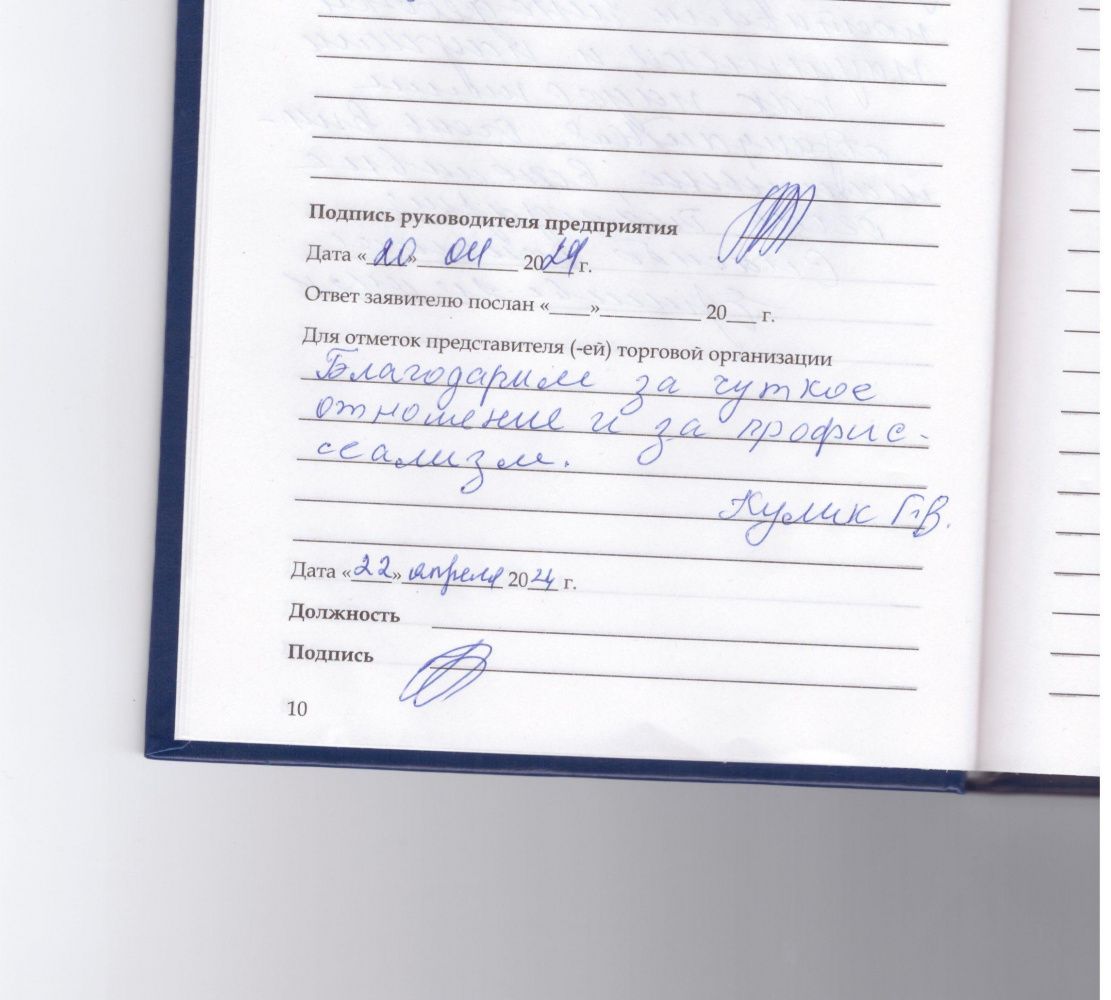 Подпись руководителя предприятия
Дата «20» 04 2024 г.
Ответ заявителю послан «____»__________ 20___ г.
Для отметок представителя (-ей) торговой организации
Благодарим за чуткое
отношение и за профис-
сеализм.
Кулик Г.В.
Дата «22» апреля 2024 г.
Должность
Подпись
10